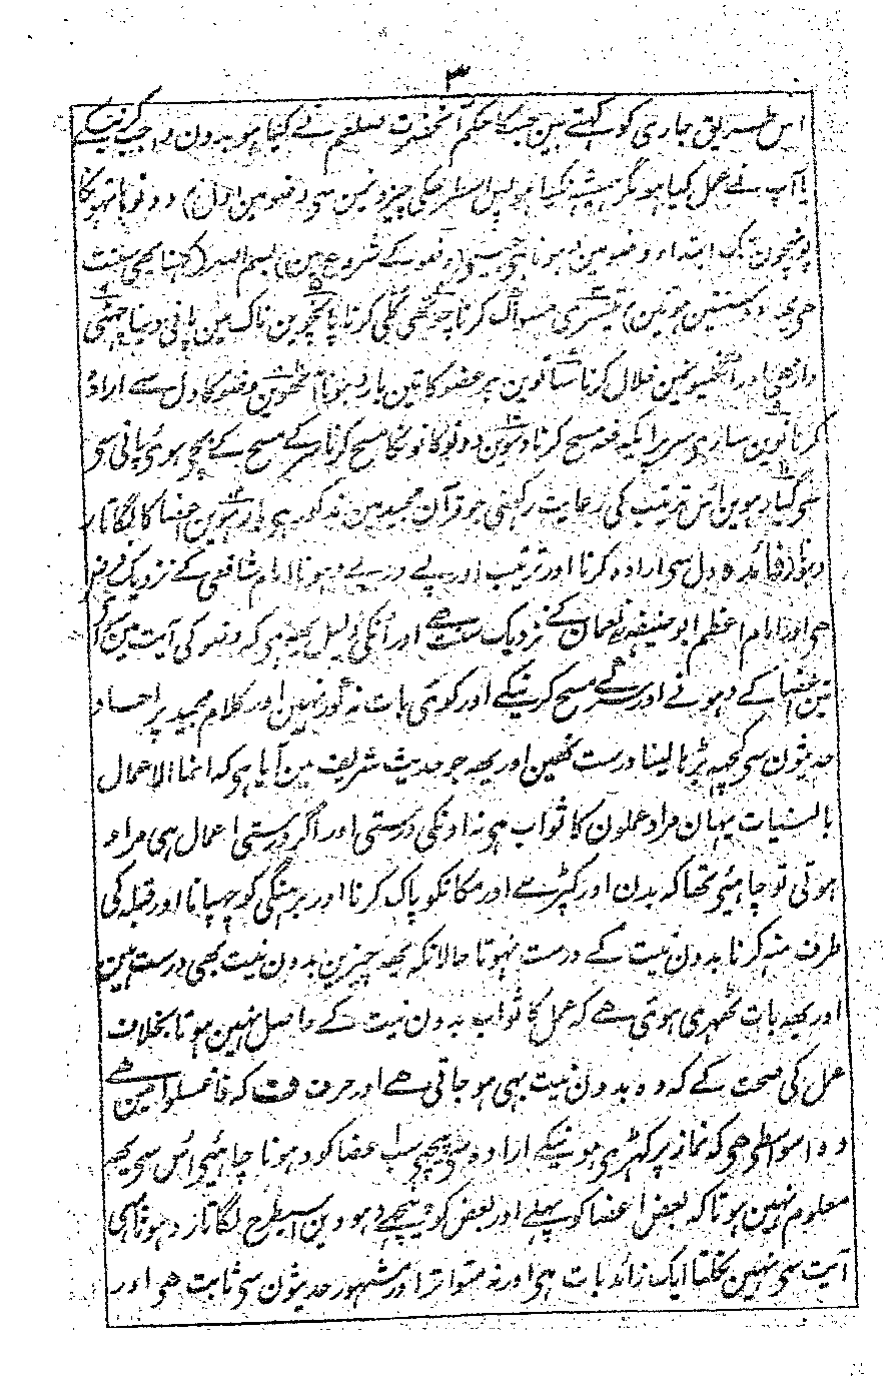 ۳
اس طریق جاری کو کہتے ہین جسکا حکم آنحضرت صلعم نے کیا ہو بدون واجب کرنیکے
یا آپ نے عمل کیا ہو مگر ہمیشہ نکیا ہو پہل سنتر حکی چیز ونمین سی وضو مین اول) دونو ہاتہونکا
پونہچون تک ابتداء وضو مین دہونا ہی دوسری (وضو کے شروع مین) بسم اللہ کہنا بھی سنت
ہی یہ دو سنتین ہوئین) تیسری مسواک کرنا چوتھی کلی کرنا پانچوین ناک مین پانی دینا چھٹی
داڑھی اور انگلیونمین خلال کرنا ساتوین ہر عضو کا تین بار دہونا آٹھوین وضو کا دل سے ارادہ
کرنا نوین ساری سر پر ایکدفعہ مسح کرنا دسوین دونو کانونکا مسح کرنا سر کے مسح کے بچی ہوئی پانی سی
سی گیارہوین اس ترتیب کی رعایت رکہنی جو قرآن مجید مین مذکور ہی بارہوین اعضا کا لگاتار
دہونا (فائدہ دل سی ارادہ کرنا اور ترتیب اور پے در پے دہونا امام شافعی کے نزدیک فرض
ہی اور امام اعظم ابو حنیفہ نعمان کے نزدیک سنت ہے اور انکی دلیل یہہ ہی کہ وضو کی آیت مین سوا
تین اعضا کے دہونے اور سر کے مسح کرنیکے اور کوئی بات مذکور نہین اور کلام مجید پر احاد
حدیثون سی کچہہ بڑہا لینا درست نہین اور یہہ جو حدیث شریف مین آیا ہی کہ انما الاعمال
بالنیات یہان مراد عملون کا ثواب ہی نہ اونکی درستی اور اگر درستی اعمال ہی مراد
ہوتی تو چاہئیے تھا کہ بدن اور کپڑے اور مکانکو پاک کرنا اور برہنگی کو چہپانا اور قبلہ کی
طرف منہ کرنا بدون نیت کے درست نہوتا حالانکہ یہہ چیزین بدون نیت بھی درست ہین
اور یہہ بات ٹھہری ہوئی ہے کہ عمل کا ثواب بدون نیت کے حاصل نہین ہوتا بخلاف
عمل کی صحت کے کہ وہ بدون نیت بہی ہو جاتی ہے اور حرف ف کہ فاغسلوا مین ہے
وہ اسواسطی ہی کہ نماز پر کہڑی ہونیکے ارادہ سی پیچہی سب اعضا کو دہونا چاہئیی اس سی یہہ
معلوم نہین ہوتا کہ بعض اعضا کو پہلے اور بعض کو پیچہے دہووین اسیطرح لگاتار دہونا بہی
آیت سی نہین نکلتا ایک زائد بات ہی اور نہ متواتر اور مشہور حدیثون سی ثابت ھی اور